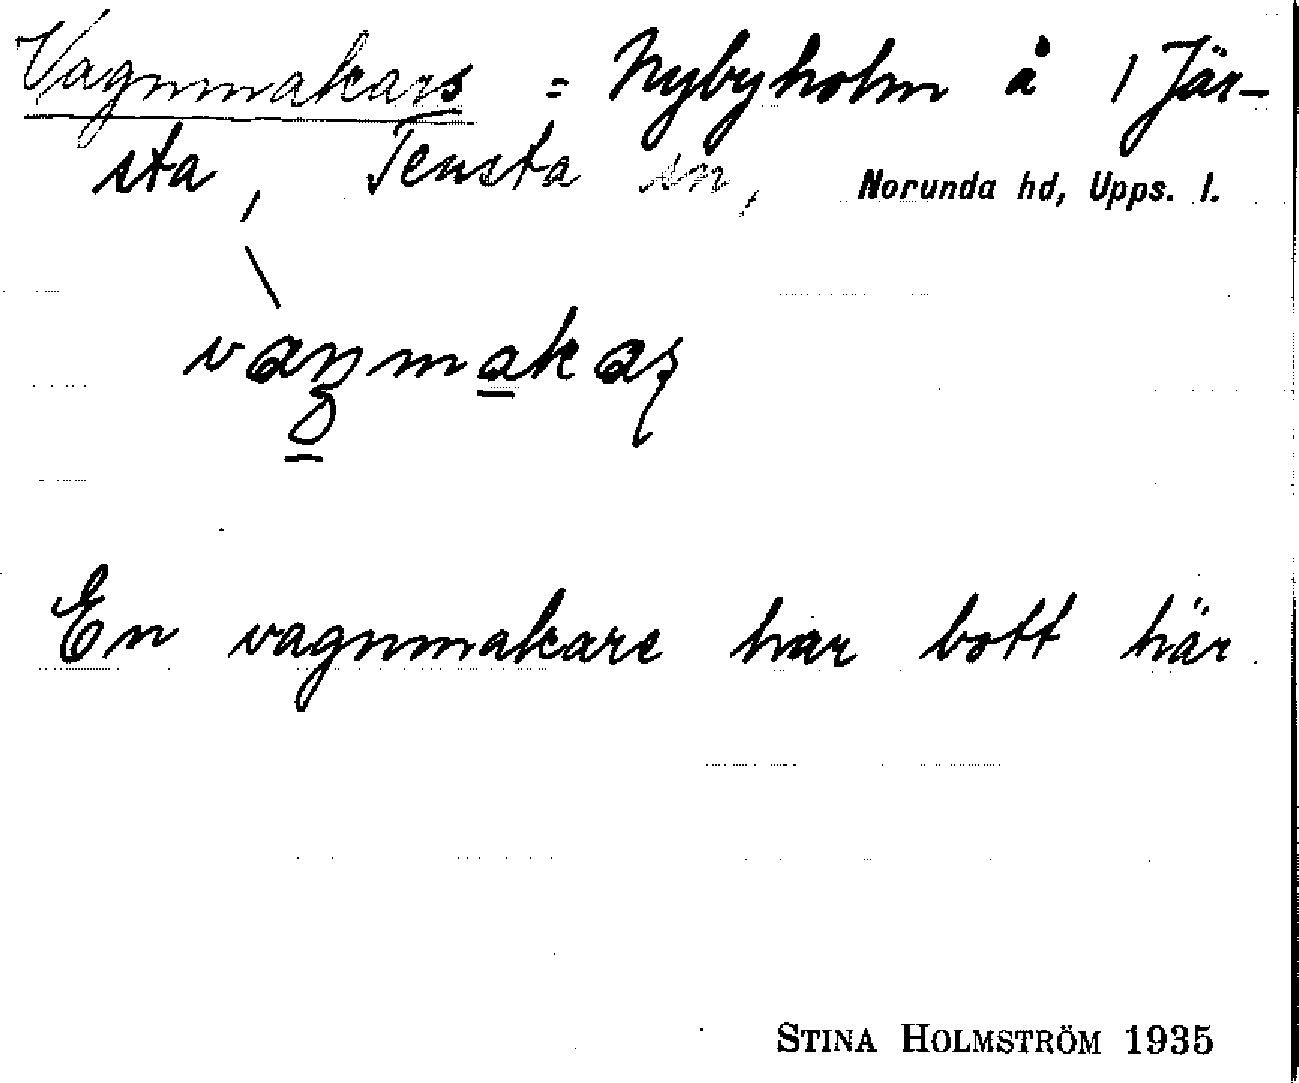 Vagnmakars = Nybyholm å 1 Jär-
sta, Tensta sn, Norunda hd, Upps. l.
En vagnmakare har bott här
STINA HOLMSTRÖM 1935